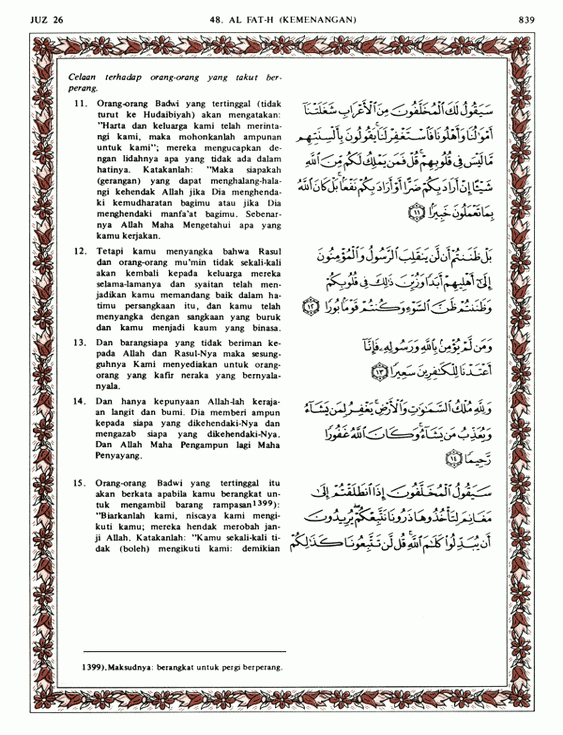 JUZ 26 48. AL FAT-H (KEMENANGAN) 839
Celaan terhadap orang-orang yang takut ber-
perang.
11. Orang-orang Badwi yang tertinggal (tidak
turut ke Hudaibiyah) akan mengatakan:
"Harta dan keluarga kami telah merinta-
ngi kami, maka mohonkanlah ampunan
untuk kami"; mereka mengucapkan de-
ngan lidahnya apa yang tidak ada dalam
hatinya. Katakanlah: "Maka siapakah
(gerangan) yang dapat menghalang-hala-
ngi kehendak Allah jika Dia menghenda-
ki kemudharatan bagimu atau jika Dia
menghendaki manfa'at bagimu. Sebenar-
nya Allah Maha Mengetahui apa yang
kamu kerjakan.
سَيَقُولُ لَكَ ٱلْمُخَلَّفُونَ مِنَ ٱلْأَعْرَابِ شَغَلَتْنَآ
أَمْوَٰلُنَا وَأَهْلُونَا فَٱسْتَغْفِرْ لَنَا يَقُولُونَ بِأَلْسِنَتِهِم
مَّا لَيْسَ فِى قُلُوبِهِمْ قُلْ فَمَن يَمْلِكُ لَكُم مِّنَ ٱللَّهِ
شَيْـًٔا إِنْ أَرَادَ بِكُمْ ضَرًّا أَوْ أَرَادَ بِكُمْ نَفْعًۢا بَلْ كَانَ ٱللَّهُ
بِمَا تَعْمَلُونَ خَبِيرًۢا ١١
12. Tetapi kamu menyangka bahwa Rasul
dan orang-orang mu'min tidak sekali-kali
akan kembali kepada keluarga mereka
selama-lamanya dan syaitan telah men-
jadikan kamu memandang baik dalam ha-
timu persangkaan itu, dan kamu telah
menyangka dengan sangkaan yang buruk
dan kamu menjadi kaum yang binasa.
بَلْ ظَنَنتُمْ أَن لَّن يَنقَلِبَ ٱلرَّسُولُ وَٱلْمُؤْمِنُونَ
إِلَىٰٓ أَهْلِيهِمْ أَبَدًا وَزُيِّنَ ذَٰلِكَ فِى قُلُوبِكُمْ
وَظَنَنتُمْ ظَنَّ ٱلسَّوْءِ وَكُنتُمْ قَوْمًۢا بُورًا ١٢
13. Dan barangsiapa yang tidak beriman ke-
pada Allah dan Rasul-Nya maka sesung-
guhnya Kami menyediakan untuk orang-
orang yang kafir neraka yang bernyala-
nyala.
وَمَن لَّمْ يُؤْمِنۢ بِٱللَّهِ وَرَسُولِهِۦ فَإِنَّآ
أَعْتَدْنَا لِلْكَٰفِرِينَ سَعِيرًا ١٣
14. Dan hanya kepunyaan Allah-lah keraja-
an langit dan bumi. Dia memberi ampun
kepada siapa yang dikehendaki-Nya dan
mengazab siapa yang dikehendaki-Nya.
Dan Allah Maha Pengampun lagi Maha
Penyayang.
وَلِلَّهِ مُلْكُ ٱلسَّمَٰوَٰتِ وَٱلْأَرْضِ يَغْفِرُ لِمَن يَشَآءُ
وَيُعَذِّبُ مَن يَشَآءُ وَكَانَ ٱللَّهُ غَفُورًا
رَّحِيمًا ١٤
15. Orang-orang Badwi yang tertinggal itu
akan berkata apabila kamu berangkat un-
tuk mengambil barang rampasan1399):
"Biarkanlah kami, niscaya kami mengi-
kuti kamu; mereka hendak merobah jan-
ji Allah. Katakanlah: "Kamu sekali-kali ti-
dak (boleh) mengikuti kami: demikian
سَيَقُولُ ٱلْمُخَلَّفُونَ إِذَا ٱنطَلَقْتُمْ إِلَىٰ
مَغَانِمَ لِتَأْخُذُوهَا ذَرُونَا نَتَّبِعْكُمْ يُرِيدُونَ
أَن يُبَدِّلُوا۟ كَلَٰمَ ٱللَّهِ قُل لَّن تَتَّبِعُونَا كَذَٰلِكُمْ
1399). Maksudnya: berangkat untuk pergi berperang.